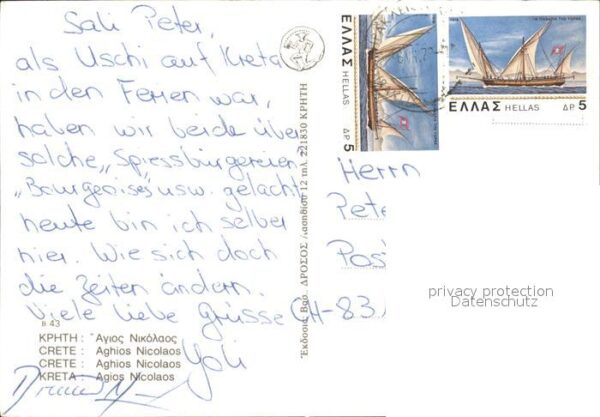 Sali Peter,
als Uschi auf Kreta
in den Ferien war,
haben wir beide über
solche „Spiessbürgereien“
„Bourgeoises“ usw. gelacht
heute bin ich selber
hier. Wie sich doch
die Zeiten ändern.
Viele liebe Grüsse
Yoli
B 43
ΚΡΗΤΗ : Ἅγιος Νικόλαος
CRETE : Aghios Nicolaos
CRETE : Aghios Nicolaos
KRETA : Agios Nicolaos
ΔΡΟΣΟΣ 12 τηλ. 221830 ΚΡΗΤΗ
ΕΛΛΑΣ HELLAS ΔΡ 5
ΕΛΛΑΣ HELLAS ΔΡ 5
Herrn
Pete
Pos
CH-83
privacy protection
Datenschutz